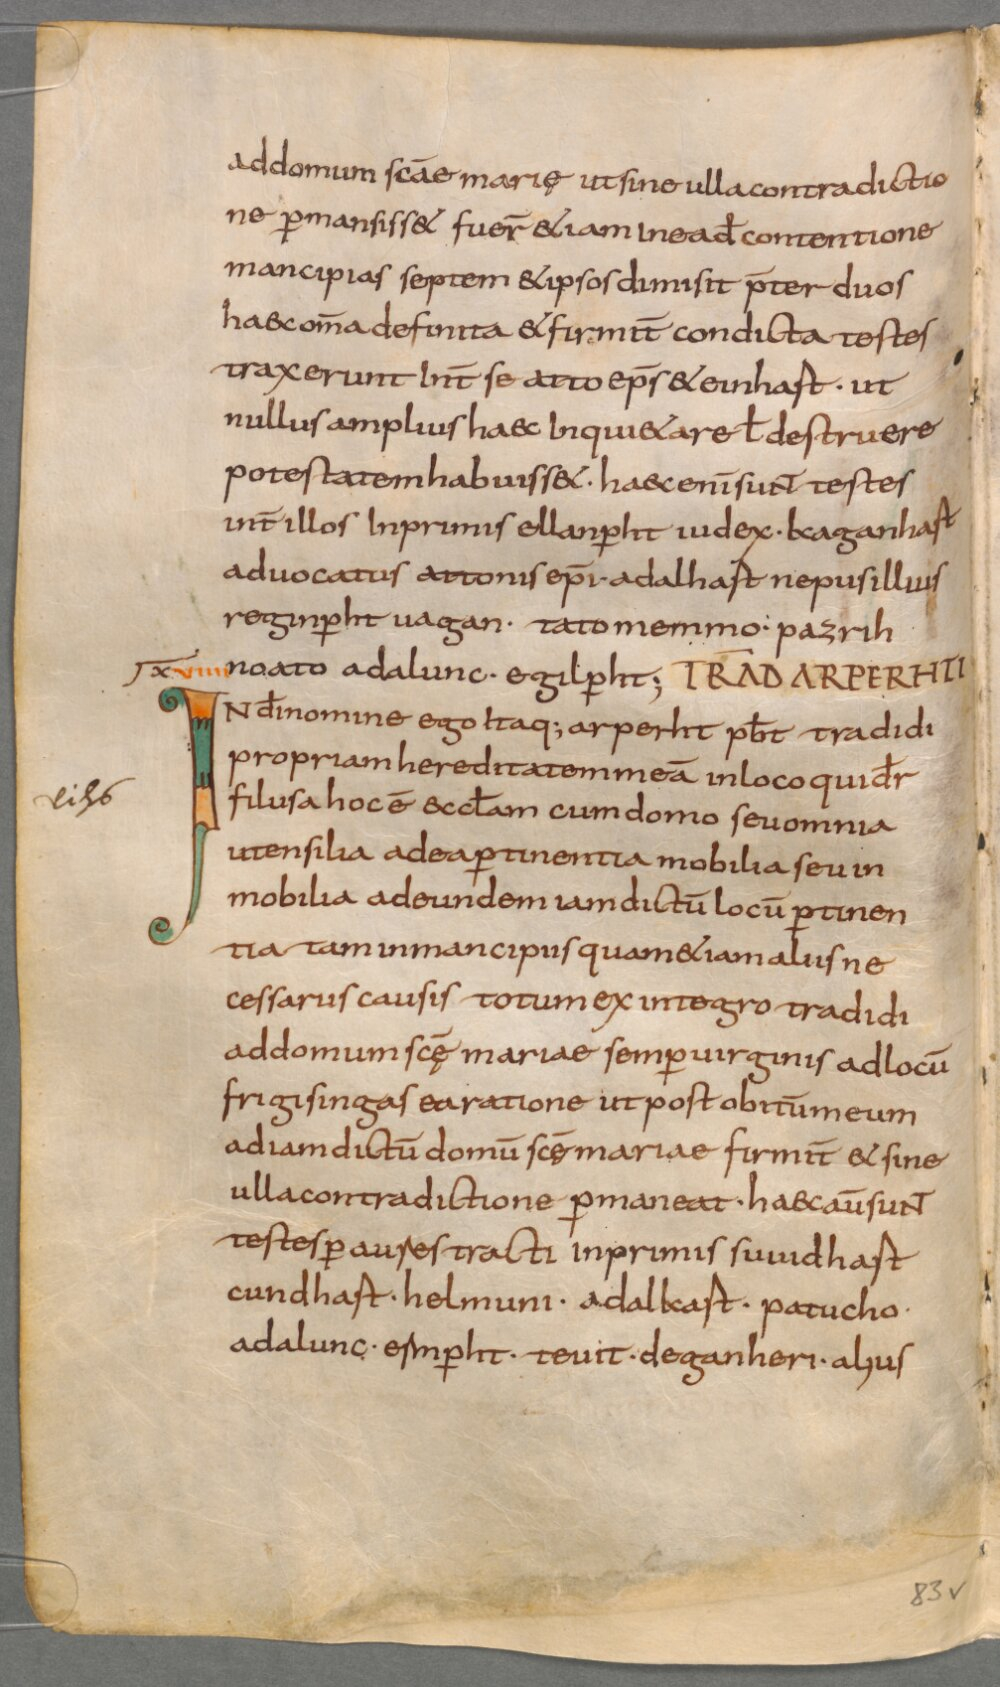 addomum scāe marię utsine ullacontradictio
ne p̄mansiss& fuer̄ &iam Inead̄ contentione
mancipias septem &ipsos dimisit p̄ter duos
ha&c om̄a definita &firmit̄ condicta testes
traxerunt Int̄ se atto ep̄s & einhast · ut
nullus amplius ha&c Inqui&are ł destruere
potestatem habuiss&· ha&c enī sunt testes
int̄ illos Inprimis ellanp̄ht iudex · kaganhast
aduocatus attonis ep̄i· adalhast nepus illius
reginp̄ht uagan · tato memmo · pazrih
noato adalunc · egilp̄ht; TRAD ARPERHTI
IN dī nomine ego Itaq; arperht pb̄t tradidi
propriam hereditatem meā in loco qui dr̄
filusa hoc ē &ccłam cum domo seu omnia
utensilia adea p̄tinentia mobilia seu in
mobilia adeundem iamdictū locū p̄tinen
tia tam inmancipiis quam &iam aliis ne
cessariis causis totum ex integro tradidi
addomum scę̄ mariae semp̄ uirginis adlocū
frigisingas ea ratione ut post obitūmeum
adiamdictū domū scę̄ mariae firmit̄ & sine
ulla contradictione p̄maneat · ha&c aū sunt
testes p̄ aures tracti inprimis suuidhast
cundhast · helmuni · adalkast · patucho ·
adalunc · esinp̄ht · teuit · deganheri · alius
83v